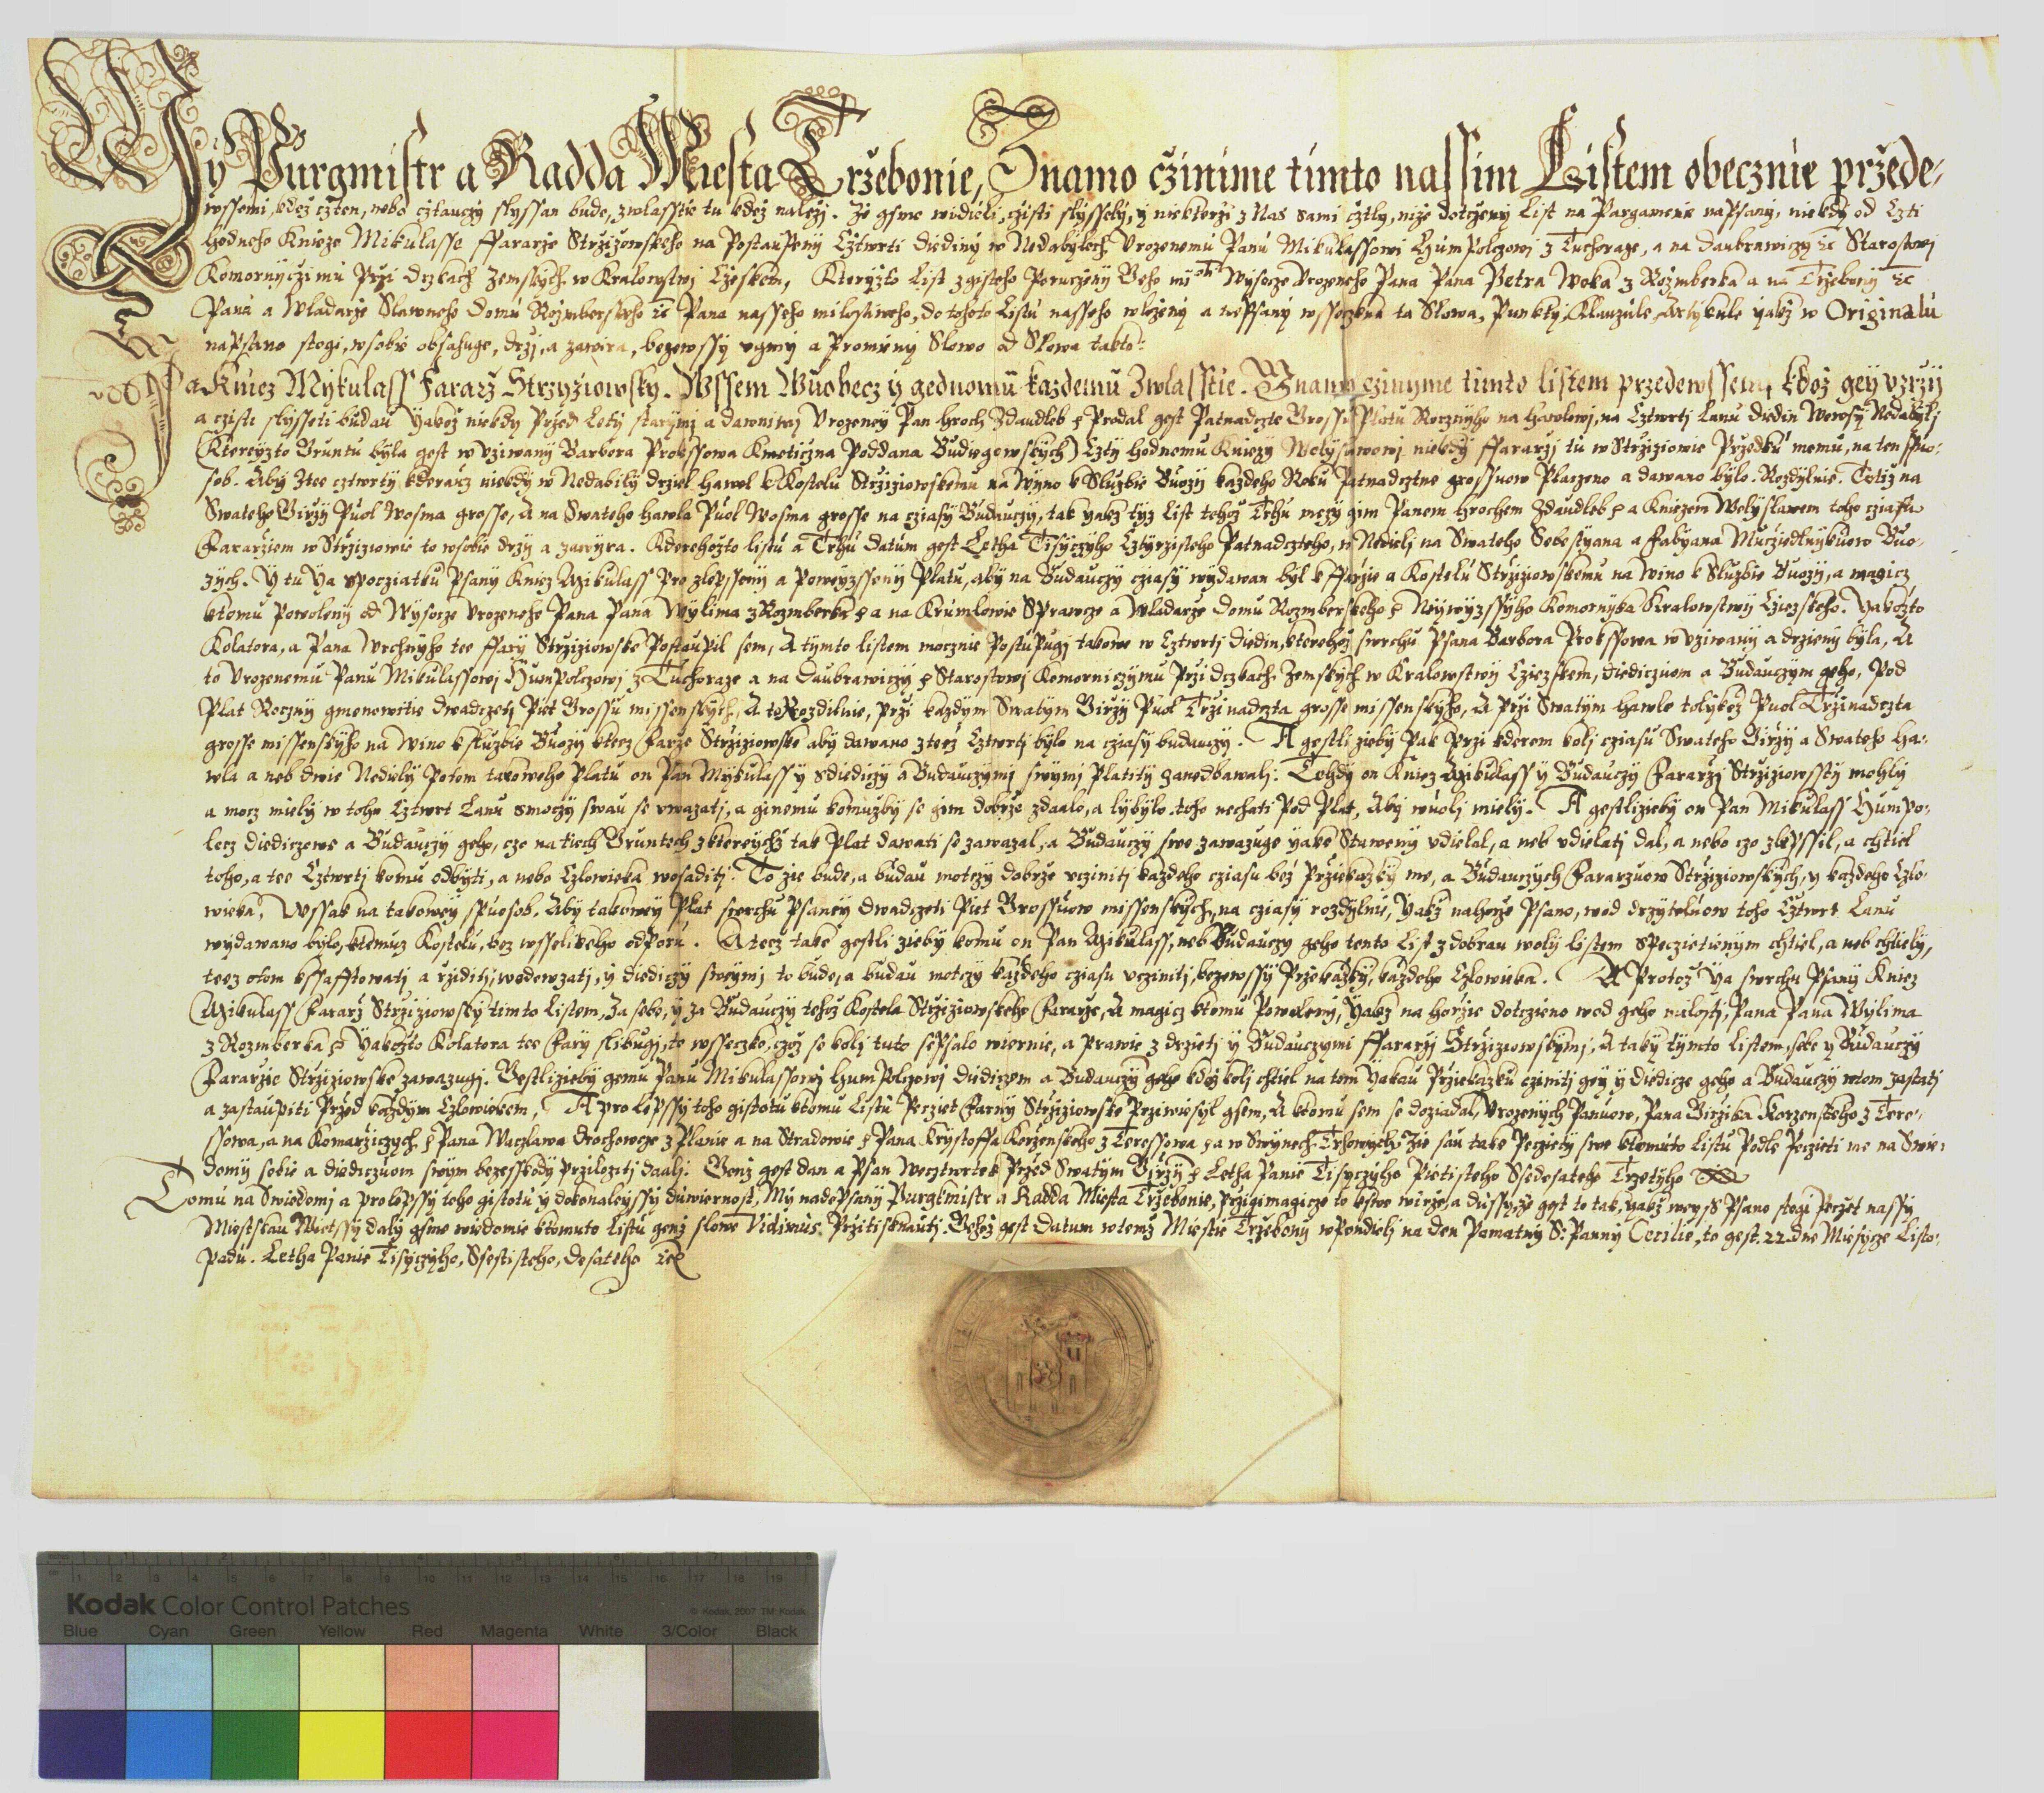 My Purgmistr a Radda Miesta Trzebonie, Znamo czinime timto nassim Listem obecznie przede-
wssemi, kdež cžten, nebo cžtauczy slyssan bude, zwlasstie tu kdež naležj. Že gsme widieli, cžisti slyssely, y niekterži z Nas sami cžtly, niže dotcženy List na Pargamenie napsany, niekdy od Czti
hodneho Knieze Mikulasse Ffararže Stržižowskeho na Postaupeny Cžtwrti Diediny w Nedabylech Vrozenemu Panu Mikulassowi Humpolczowj z Tuchoraze, a na Daubrawiczy ꝛc Starostowj
Komorniczimu Prži Dczkach Zemskych w Kralowstwj Cžeskem, Kteryžto List z gisteho Porucženy Geho mi^osti Wysocze Vrozeneho Pana Pana Petra Woka z Rožmberka a na Tržebony ꝛc
Pana a Wladarže Slawneho Domu Rožmberskeho ꝛc Pana nasseho milostiweho, do tohoto Listu nasseho wloženy a wepsany wsseczkna ta Slowa, Punkty, Klauzule, Artykule yakž w Originalu
napsano stogi, w sobie obsahuge, drži, a zawira, bezewssy vgmy a Promieny Slowo od Slowa takto:
Ja Kniez Mykulass Fararž Strzyžiowsky. Wssem Wuobecz y gednomu každemu Zwlasstie. Znamo czinyme timto listem przedewssemi, kdož gey vzržy
a czisti slysseti budau Yakož niekdy Pržed Lety starymi a dawnimi Vrozeney Pan Hroch Zdaudleb ꝛc Prodal gest Patnadczte Grossu Platu Rocznyho na Hawlowj, na Cztwrtj Lanu Diedin Wewsy Nedabylj
(Ktereyzto Gruntu byla gest w vziwany Barbora Prokssowa Kmeticzna Poddana Budiwgowskych) Czty hodnemu Kniezy Welyslawowj niekdy Ffararzj tu w Stržiziowie Pržedku memu, na ten spuo-
sob. Aby Ztee cztwrty kderauz niekdy w Nedabily držiel Hawel k Kostelu Stržiziowskemu na Wyno k Službie Buožy každeho Roku Patnadcztne grossuow Placzeno a dawano bylo. Rozdylnie. Totiz na
Swateho Giržy Puol Wosma grosse, A na Swateho Hawla Puol Wosma grosse na cziasy Budauczy, tak yakž tyz List tehož Trhu mezy gim Panem Hrochem Zdaudleb ꝛc a Kniezem Welyslawem toho cziasu
Fararžiem w Stržiziowie to w sobie drzy a zawyra. Kderehožto listu a Trhu datum gest Letha Tisyczyho Cztyrzisteho Patnadczteho, w Nedieli na Swateho Sebestyana a Fabyana Mucziedlnykuow Buo-
žych. Y tu Ya spocziatku Psany Kniez Mikulass Pro zlepsseny a poweyzsseny Platu, aby na Budauczy cziasy wydawan byl k ffarzie a Kostelu Stržiziowskemu na Wino k Službie Buozy, a magicz
ktomu Powoleny od Wysocze Vrozeneho Pana Pana Wylima z Rozmberka ꝛc a na Krumlowie Sprawcze a Wladarze domu Rozmberskeho ꝛc Neywyzssyho Komornyka Kralowstwy Cziezskeho. Yakožto
Kolatora, a Pana Vrchnyho tee ffary Stržiziowske Postaupil sem, A tymto listem mocznie Postupugi takowe w Cztwrtj diedin, kterehož swrchu Psana Barbora Prokssowa w vziwany a drzieny byla, A
to Vrozenemu Panu Mikulassowj Humpolczowj z Tuchoraze a na Daubrawiczy ꝛc Starostowj Komorniczymu Prži Dczkach Zemskych w Kralowstwy Cziezskem, diediczuom a Budauczym geho, Pod
Plat Roczny gmenowitie dwadczeti Piet Grossu missenskych, A to Rozdilnie, prži kazdym Swatym Girzy Puol Tržinadczta grosse missenskyho, A prži Swatym Hawle tolykež Puol Tržinadczta
grosse missenskyho na Wino k službie Buožy ktecz Farze Stržiziowske aby dawano z tež Cztwrtj bylo na cziasy budauczy. A gestli zieby Pak Prži kderem kolj cziasu Swateho Giržy a Swateho Ha-
wla a neb dwie Nediely Potom takoweho Platu on Pan Mykulass y s diediczy a Budauczymj swymj Platity zanedbawalj: Tehdy on Kniez Mikulass y Budauczy Fararži Stržiziowssty mohly
a mocz miely w toho Cztwrt Lanu smoczy swau se vwazatj, a ginemu komužby se gim dobrze zdaalo, a lybylo toho nechati Pod Plat, Aby wuolj miely. A gestlizieby on Pan Mikulass Humpo-
lecz diediczowe a Budauczy geho, czo na tiech Gruntech z ktereychž tak Plat dawati se zawazal, a Budauczy swe zawazuge yake Staweny vdielal, a neb vdielatj dal, a nebo czo zlepssil, a chtiel
toho, a tee Cztwrtj komu odbyti, a nebo Czlowieka wosaditj: To zie bude, a budau moczy dobrze vczinitj kazdeho cziasu bež Prziekazky me, a Budauczych Fararžuow Stržiziowskych, y kazdeho Czlo-
wieka, Wssak na takowey spuosob. Aby takowey Plat swrchu Psaney dwadczeti Piet Grossuow missenskych, na cziasy rozdylnie, Yakž nahorze Psano, wod drzyteluow toho Cztwrt Lanu
wydawano bylo, ktemuz Kostelu, bez wsselikeho odporu. A tecz take gestli zieby komu on Pan Mikulass, neb Budauczy geho tento List z dobrau woly Listem Speczietienym chtiel, a neb chtiely,
teez otom kssafftowatj a rzyditj, wodewzatj, y diediczy sweymj to bude, a budau moczy kazdeho cziasu vczinitj, bezewssy Pržekazky, kazdeho Czlowieka. A Protož Ya swrchu Psany Kniez
Mikulass Fararž Stržiziowsky timto Listem, Za sebe, y za Budauczy tehož Kostela Stržiziowskeho Fararže, A magicz ktomu Powoleny, Yakž na horzie dotczieno wod geho milosti, Pana Pana Wylima
z Rozmberka ꝛc Yakožto Kolatora tee Fary slibugi, to wsseczko, czož se kolj tuto sepsalo wiernie, a prawie z drzietj y Budauczymi Ffararži Stržiziowskymj, A taky tymto Listem, sebe y Budauczy
Fararžie Stržiziowske zawazugj. Gestlizieby gemu Panu Mikulassowj Humpolczowj diediczom a Budauczym geho kdož kolj chtiel na tom Yakau Prziekazku czinitj gey y diedicze geho a Budauczy wtom zastatj
a zastaupiti Pržed kazdym Czlowiekem, A pro lepssy toho gistotu ktomu Listu Peczet Farny Stržiziowske Prziwiesyl gsem, A ktomu sem se dožiadal, Vrozenych Panuow, Pana Giržika Korzenskeho z Tere-
ssowa, a na Komaržiczych, ꝛc Pana Waczlawa Drochowcze z Planie a na Stradowie ꝛc Pana Krystoffa Korženskeho z Teressowa ꝛc a w Swynech Trhowych, Zie sau take Pecziety swe ktomuto Listu Podle Peczieti me na Swie-
domy sobie a diediczuom swym bezesskody przilozitj daalj: Genž gest dan a Psan Wecztwrtek Pržed Swatym Giržy ꝛc Letha Panie Tisyczyho Pietisteho Ssedesateho Trzetyho ꝛc
Tomu na Swiedomj a prolepssy toho gistotu y dokonaleyssy duwiernost, My nadepsany Purgkmistr a Radda Miesta Tržebonie, pržigimagicze to k swe wierže, a dussy, že gest to tak, yakž weyss Psano stogi Peczet nassy
Miestskau Wietssy daly gsme wiedomie ktomuto Listu genž slowe Vidimus. Pržitisknauti. Gehož gest Datum wtemž Miestie Tržebony wPondieli na den Pamatny S: Panny Cecilie, to gest. 22. dne Miesycze Listo-
padu. Letha Panie Tisyczyho, Ssestisteho, desateho ꝛc
Kodak Color Control Patches
© Kodak, 2007 TM: Kodak
Blue Cyan Green Yellow Red Magenta White 3/Color Black